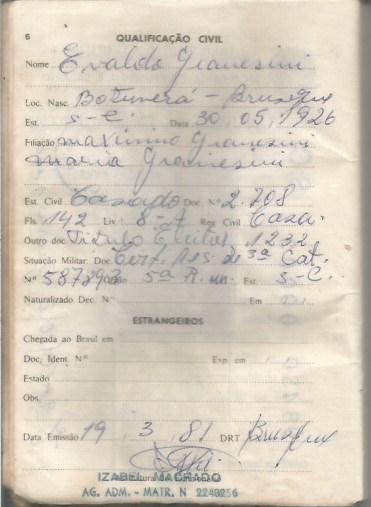 6
QUALIFICAÇÃO CIVIL
Nome Evaldo Gianesini
Loc. Nasc. Botuverá - Brusque
Est. S-C. Data 30.05.1926
Filiação Maximino Gianesini
Maria Gianesini
Est. Civil Casado Doc Nº 2.708
Fls. 142 Liv. 8-A Reg Civil Casa.
Outro doc. Titulo Eleitor 1232
Situação Militar: Doc. Cert. Res de 3ª Cat.
Nº 587893 5ª R.m. Est. S-C.
Naturalizado Dec. Nº Em
ESTRANGEIROS
Chegada ao Brasil em
Doc. Ident. Nº Exp. em
Estado
Obs.
Data Emissão 19.3.81 DRT Brusque
IZABEL MACHADO
AG. ADM. - MATR. N 2249256